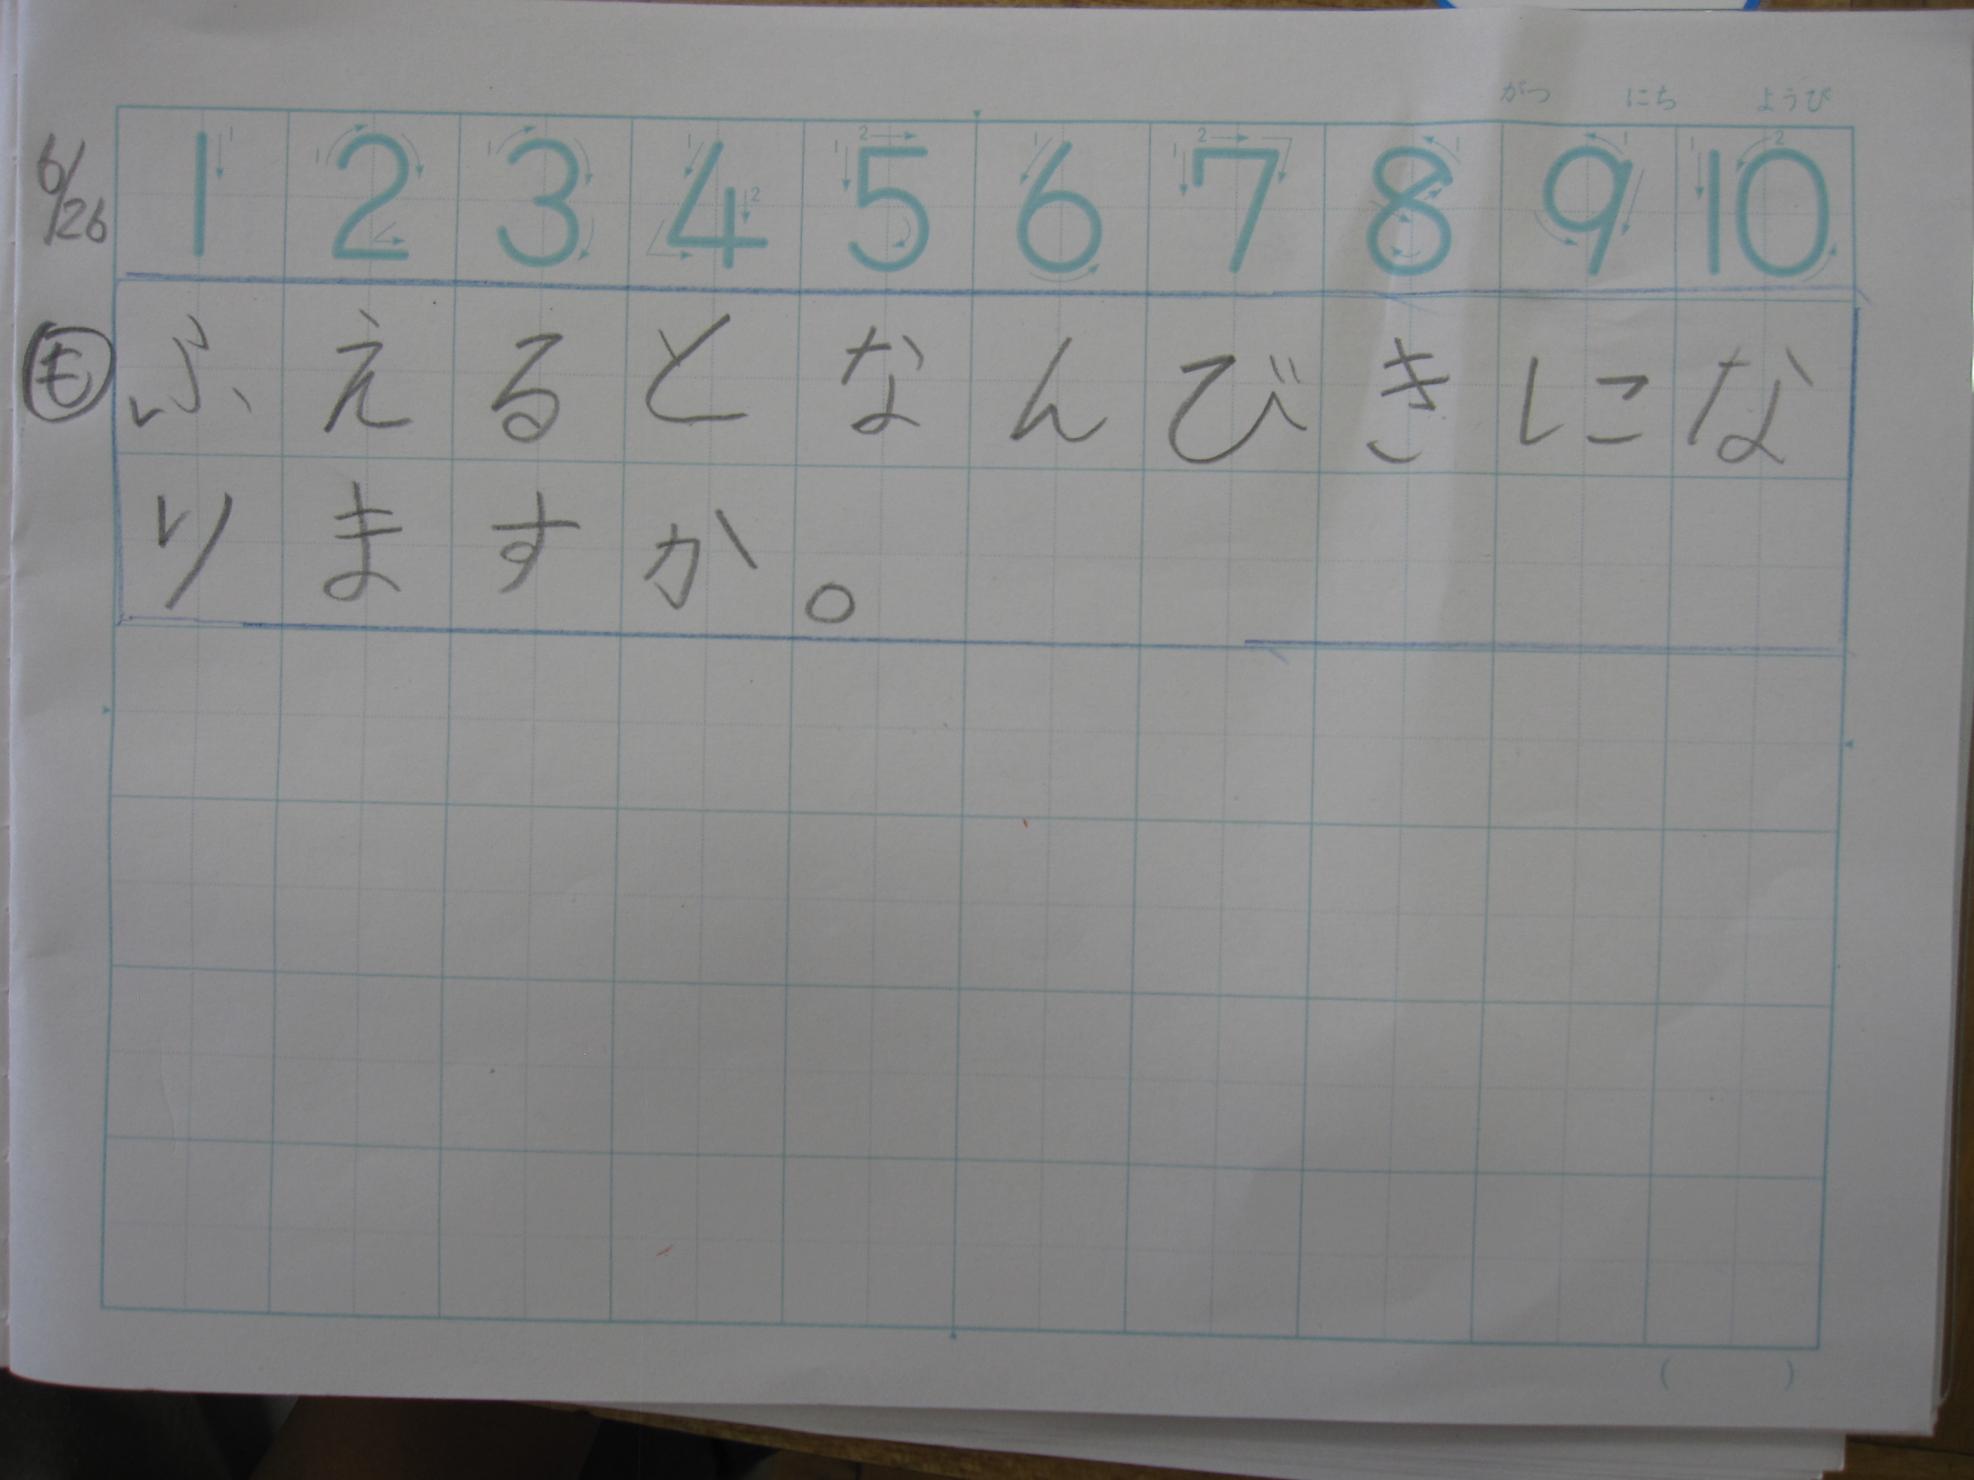 がつ にち ようび
6/26 1 2 3 4 5 6 7 8 9 10
も ふえるとなんびきにな
りますか。
( )